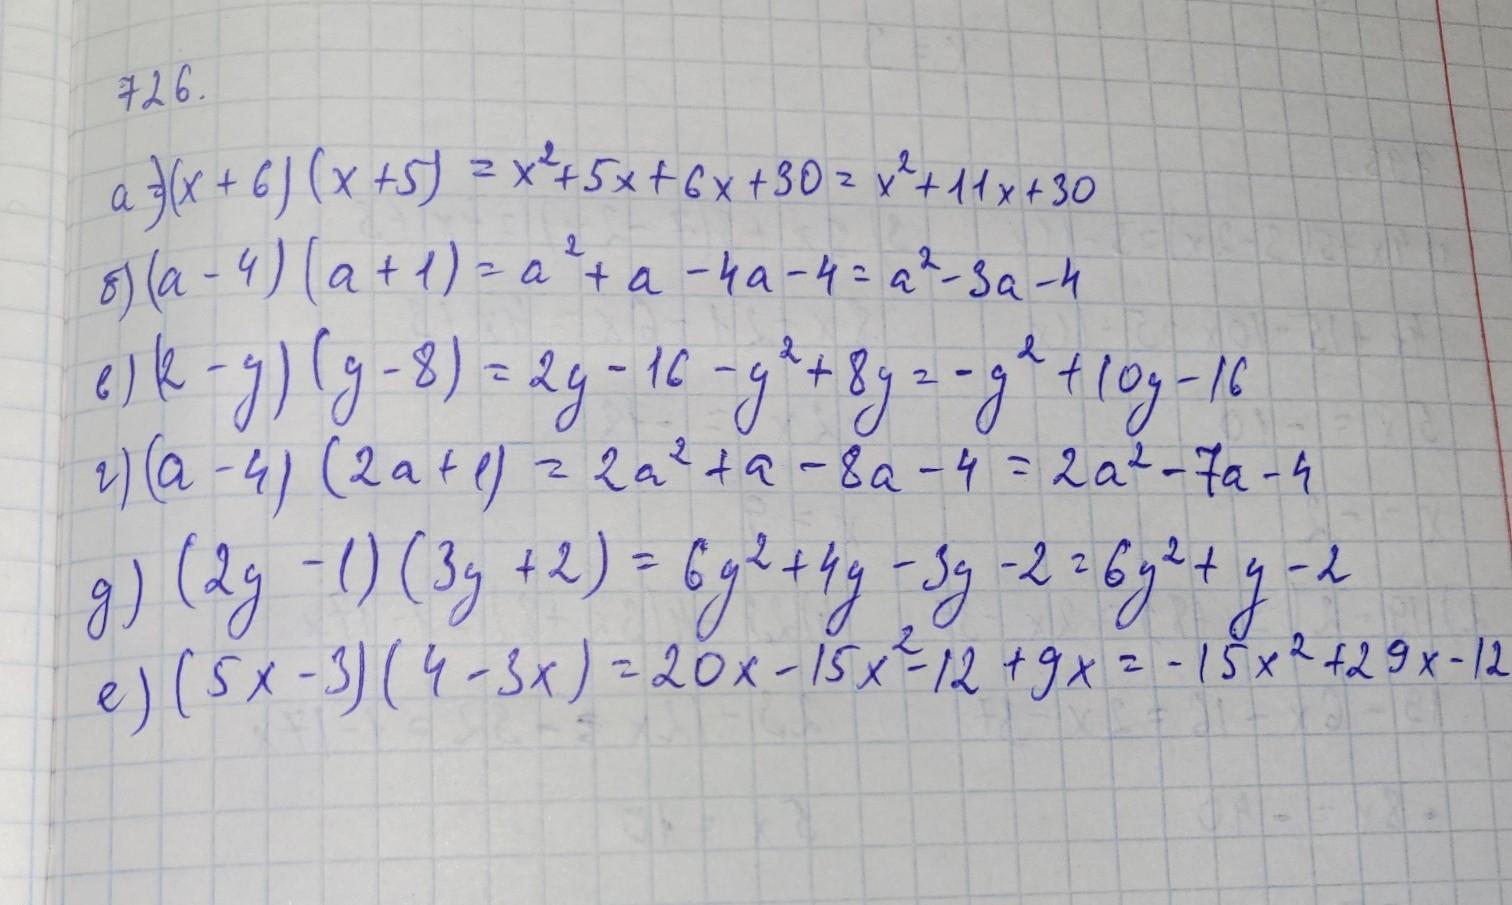 726.
а) (x + 6) (x + 5) = x² + 5x + 6x + 30 = x² + 11x + 30
б) (a - 4) (a + 1) = a² + a - 4a - 4 = a² - 3a - 4
в) (2 - y) (y - 8) = 2y - 16 - y² + 8y = -y² + 10y - 16
г) (a - 4) (2a + 1) = 2a² + a - 8a - 4 = 2a² - 7a - 4
д) (2y - 1) (3y + 2) = 6y² + 4y - 3y - 2 = 6y² + y - 2
е) (5x - 3) (4 - 3x) = 20x - 15x² - 12 + 9x = -15x² + 29x - 12